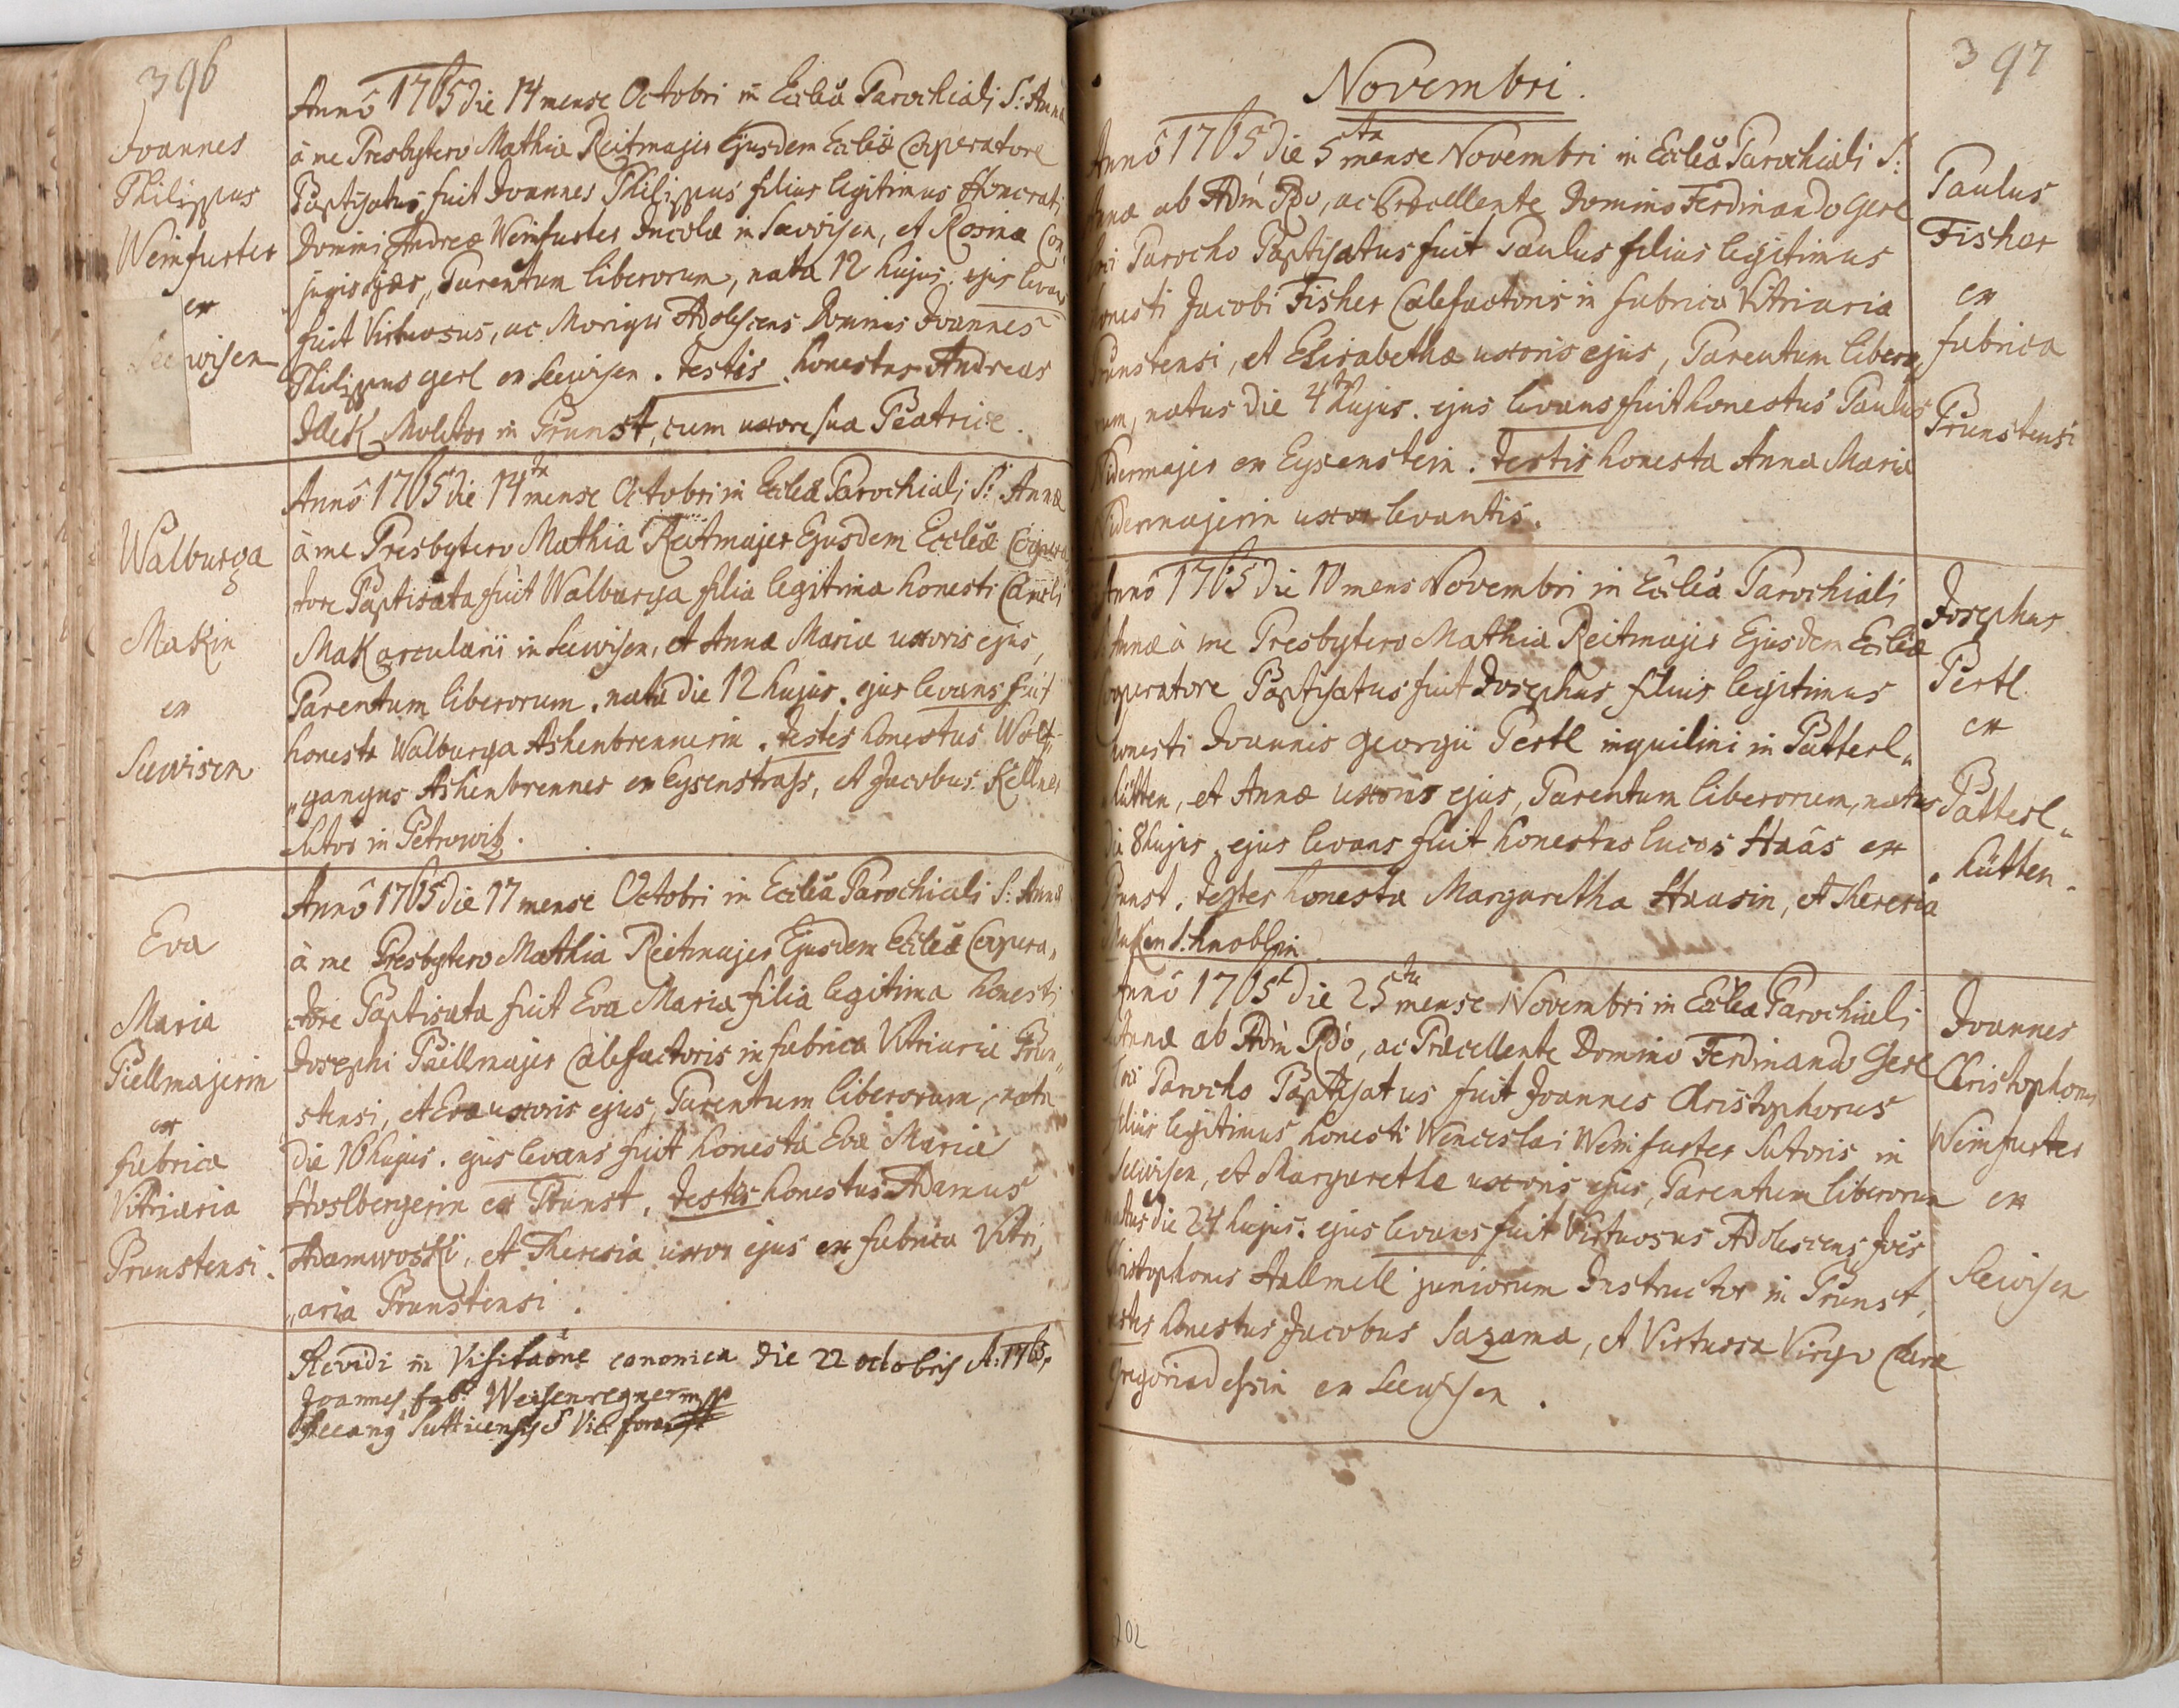 396
Joannes
Philippus
Weinfurter
ex
Seewisen
Anno 1765 die 14 mense Octobri in Eccleâ Parochiali S: Annæ
à me Presbytero Mathia Reitmajer Ejusdem Eccleæ Coõperatore
Baptisatus fuit Joannes Philippus filius legitimus Honorati
Domini Andreæ Weinfurter Incolæ in Seewisen, et Rosinæ Con,
jugis ejus, Parentum liberorum, nata 12 hujus. ejus levans
fuit Virtuosus, ac Morigerus Adolescens Dominus Joannes
Philippus Gerl ex Seewisen. testis honestus Andreas
Molitor in Prunst, cum uxore sua Beatrice.
Walburga
Makin
ex
Seewisen
Anno 1765 die 14ta mense Octobri in Eccleâ Parochiali S: Annæ
à me Presbytero Mathia Reitmajer Ejusdem Eccleæ Coopera,
tore Baptisata fuit Walburga filia legitima honesti
Mak arcularii in Seewisen, et Annæ Mariæ uxoris ejus,
Parentum liberorum, nata die 12 hujus. ejus levans fuit
honesta Walburga Ashenbrennerin. testes honestus Wolf,,
,,gangus Ashenbrenner ex Eysenstrass, et Jacobus Kellner
sutor in Petrowitz.
Eva
Maria
Piellmajerin
ex
fabrica
Vitriaria
Prunstensi.
Anno 1765 die 17 mense Octobri in Eccleâ Parochiali S: Annæ
à me Presbytero Mathia Reitmajer Ejusdem Eccleæ Coopera,,
tore Baptisata fuit Eva Maria filia legitima honesti
Josephi Piellmajer Calefactoris in fabrica Vitriaria Prun,,
stensi, et Evæ uxoris ejus, Parentum liberorum, nata
die 16 hujus. ejus levans fuit honesta Eva Maria
Hoslbergerin ex Prunst, testis honestus Adamus
Adamwoski, et Theresia uxor ejus ex fabrica Vitri,
,,aria Prunstensi.
Revidi in Visitaõne canonica die 22 octobris A: 1765.
Joannes Weisenregner mpp
Decanus Sutticensis Vic. foran
397
Novembri.
Anno 1765 die 5ta mense Novembri in Eccleâ Parochiali S:
Annæ ab Adm Rdo, ac Præcellente Domino Ferdinando Gerl
loci Parocho Baptisatus fuit Paulus filius legitimus
honesti Jacobi Fisher Calefactoris in fabrica Vitriaria
Prunstensi, et Elisabethæ uxoris ejus, Parentum libero,
rum, natus die 4ta hujus. ejus levans fuit honestus Paulus
Nidermajer ex Eysenstein. testis honesta Anna Maria
Nidermajerin uxor levantis.
Paulus
Fisher
ex
fabrica
Prunstensi
Anno 1765 die 10 mens Novembri in Eccleâ Parochiali
S: Annæ à me Presbytero Mathia Reitmajer Ejusdem Eccleæ
Cooperatore Baptisatus fuit Josephus filius legitimus
honesti Joannis Georgii Pertl inquilini in Patterl,,
hütten, et Annæ uxoris ejus, Parentum liberorum, natus
die 8 hujus, ejus levans fuit honestus Lucas Haas ex
Prunst. testes honesta Margaretha Haasin, et Theresia
Josephus
Pertl
ex
Patterl,,
hütten.
Anno 1765 die 25ta mense Novembri in Eccleâ Parochiali
S: Annæ ab Adm Rdo, ac Præcellente Domino Ferdinando Gerl
loci Parocho Baptisatus fuit Joannes Christophorus
filius legitimus honesti Wenceslai Weinfurter Sutoris in
Seewisen, et Margarethæ uxoris ejus, Parentum liberorum
natus die 24 hujus. ejus levans fuit Virtuosus Adolescens Joes
Christophorus Hallmell juniorum Instructor in Prunst,
testes honestus Jacobus Sazama, et Virtuosa Virgo Clara
Gregoriadessin ex Seewisen.
Joannes
Christophorus
Weinfurter
ex
Seewisen
202